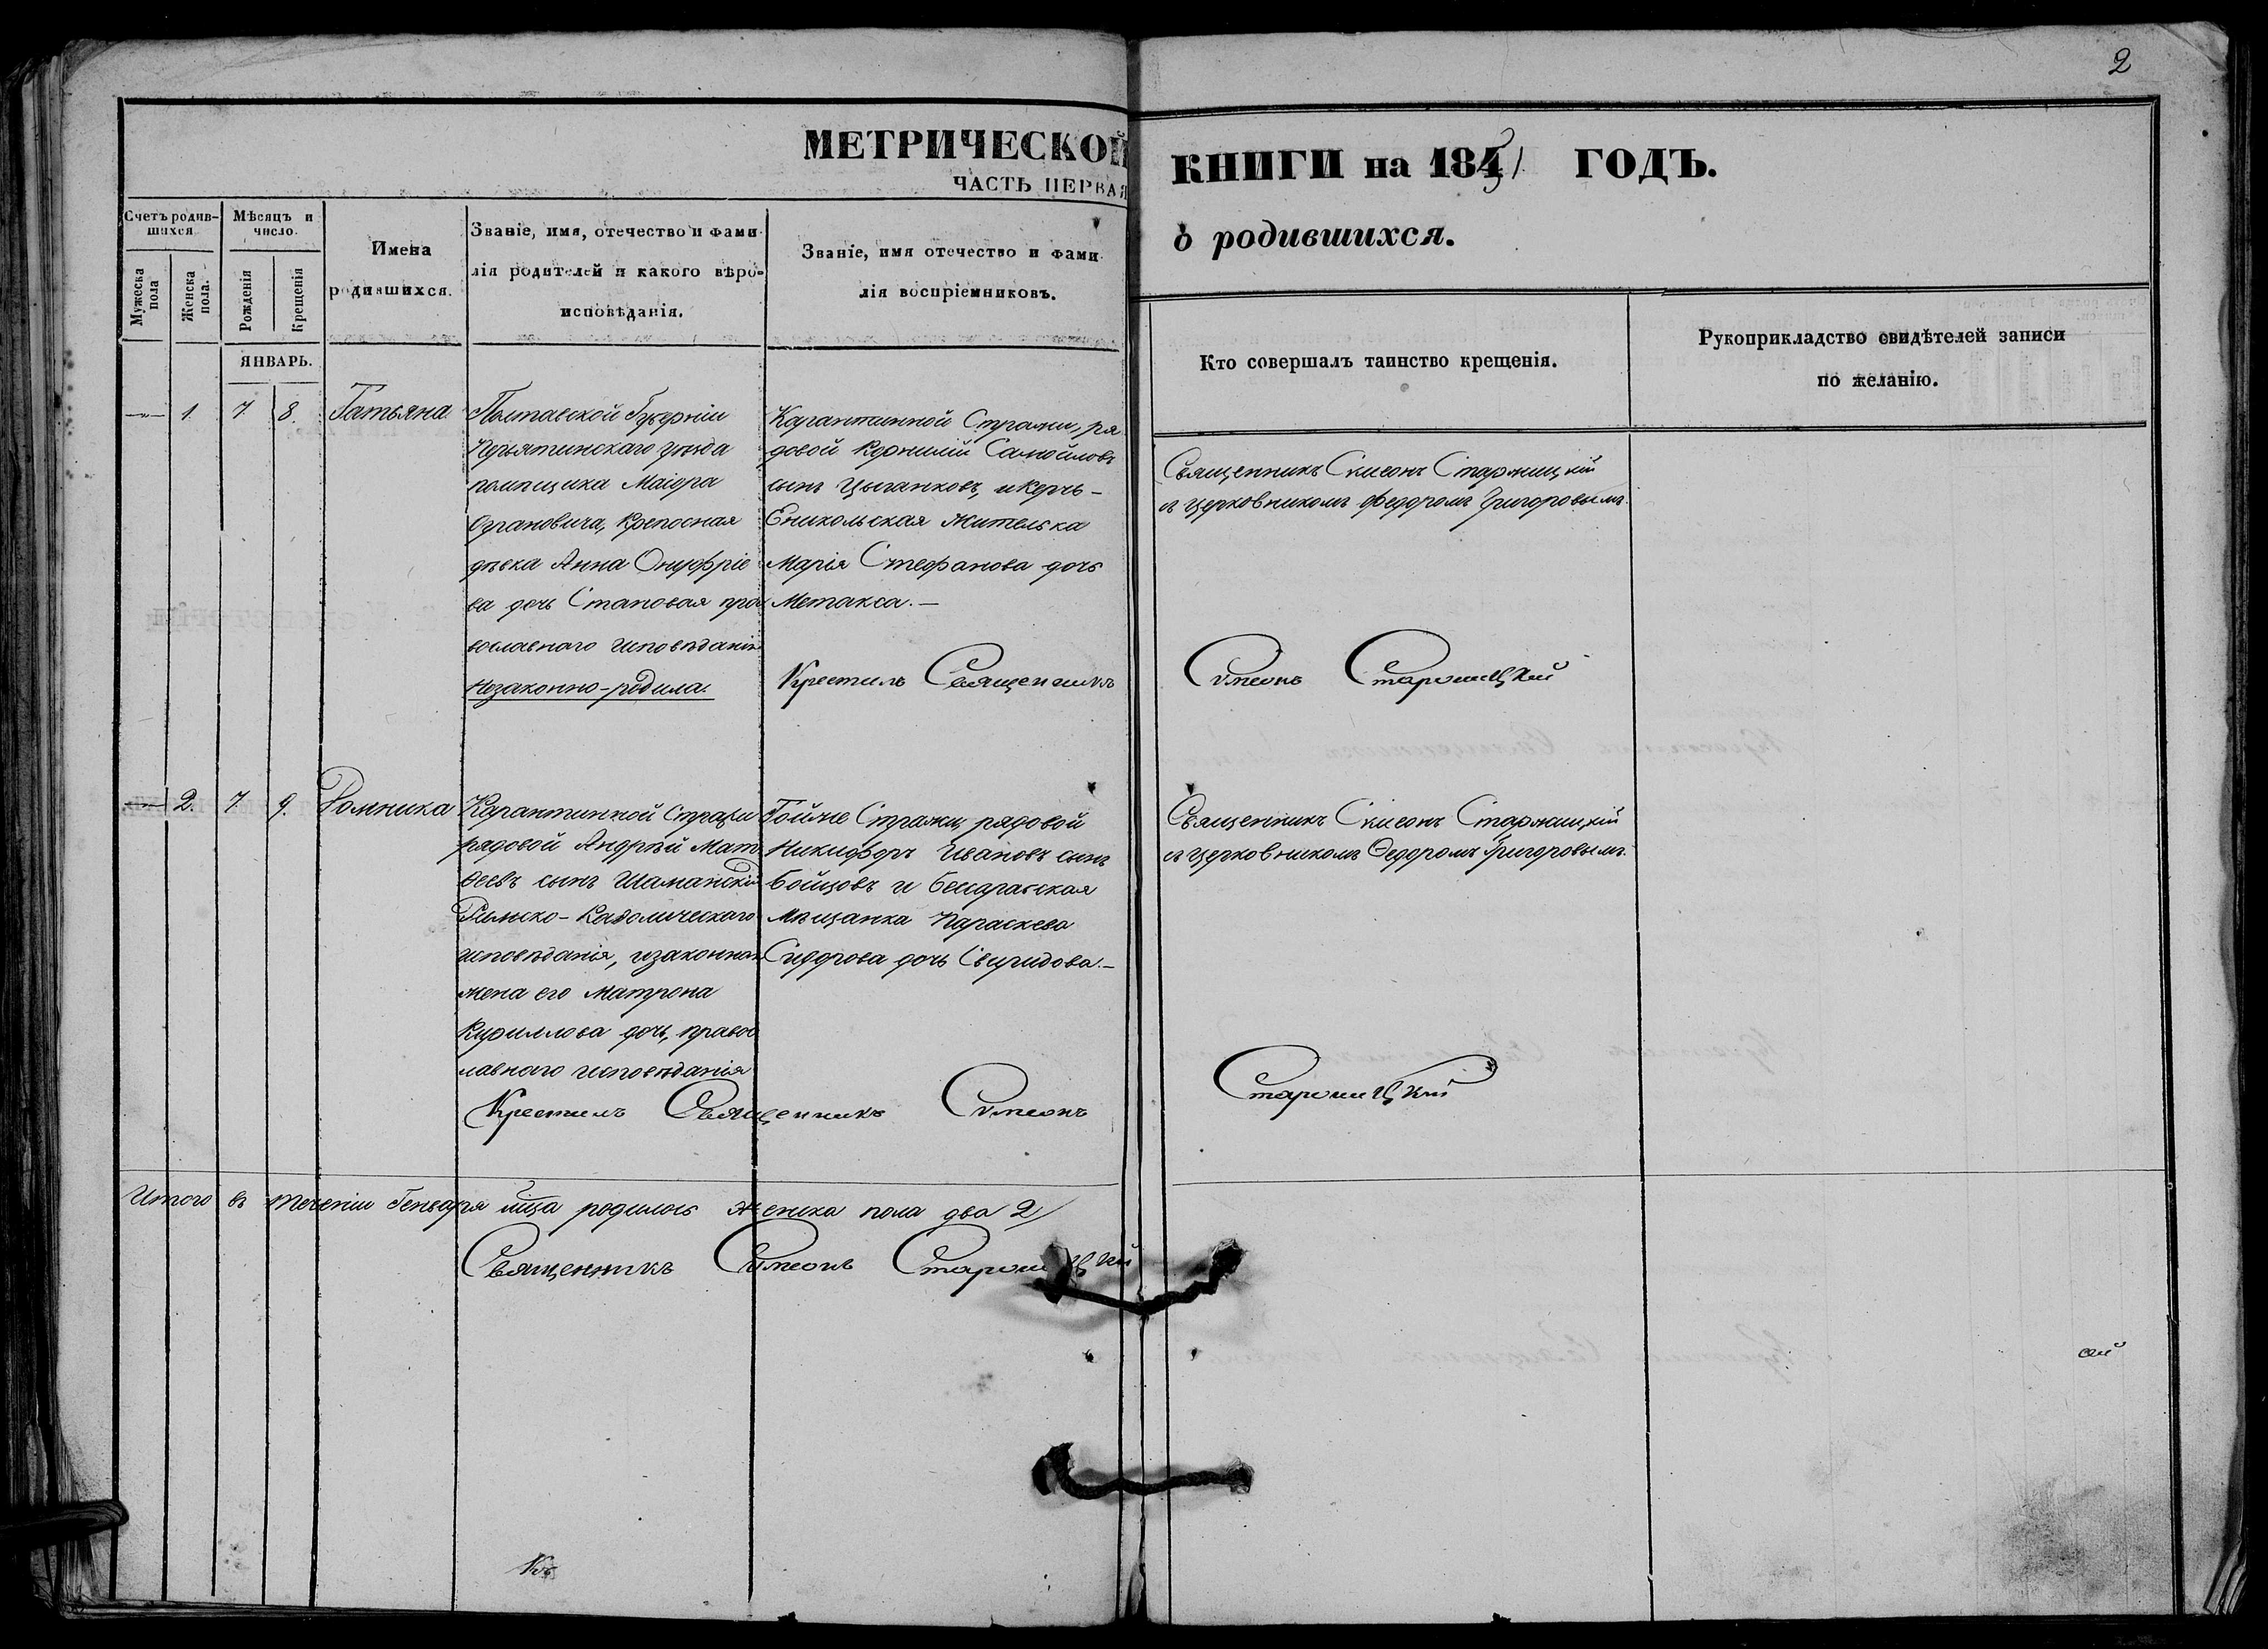 2
МЕТРИЧЕСКОЙ КНИГИ на 1851 ГОДЪ.
ЧАСТЬ ПЕРВАЯ
о родившихся.
Счетъ родив-
шихся
Мужеска пола
Женска пола.
Мѣсяцъ и
число.
Рожденія
Крещенія
Имена
родившихся.
Званіе, имя, отечество и фами-
лія родителей и какого вѣро-
исповѣданія.
Званіе, имя отечество и фами-
лія воспріемниковъ.
Кто совершалъ таинство крещенія.
Рукоприкладство свидѣтелей записи
по желанію.
ЯНВАРЬ.
1. 7. 8. Татьяна
Полтавской Губерніи
Пирятинскаго уѣзда
помѣщика Маіора
крепосная
дѣвка Анна Онуфріе
ва дочь Становая пра
вославнаго исповѣданія
незаконно-родила.
Карантинной Стражи, ря
довой Корнилій Самойловъ
сынъ Цыганковъ, и Керчь-
Еникольская жителька
Марія Стефанова дочь
Метакса.—
Священникъ Симеонъ Старжицкій
съ церковникомъ Федоромъ Григоровымъ.
Крестилъ Священникъ Симеонъ Старжицкій
2. 7. 9. Домника
Карантинной Стражи
рядовой Андрѣй Мат
ѳеевъ сынъ Шаманскій
Римско-Каѳолическаго
исповѣданія, и законная
жена его Матрона
Кириллова дочь, правос
лавнаго исповѣданія
Тойже Стражи рядовой
Никифоръ Ивановъ сынъ
Бойцовъ и
мѣщанка Параскева
Сидорова дочь Свиридова.—
Священникъ Симеонъ Старжицкій
съ церковникомъ Ѳедоромъ Григоровымъ.
Крестилъ Священникъ Симеонъ Старжицкій
Итого въ теченіи Генваря мца родилось женска пола два 2
Священникъ Симеонъ Старжицкій